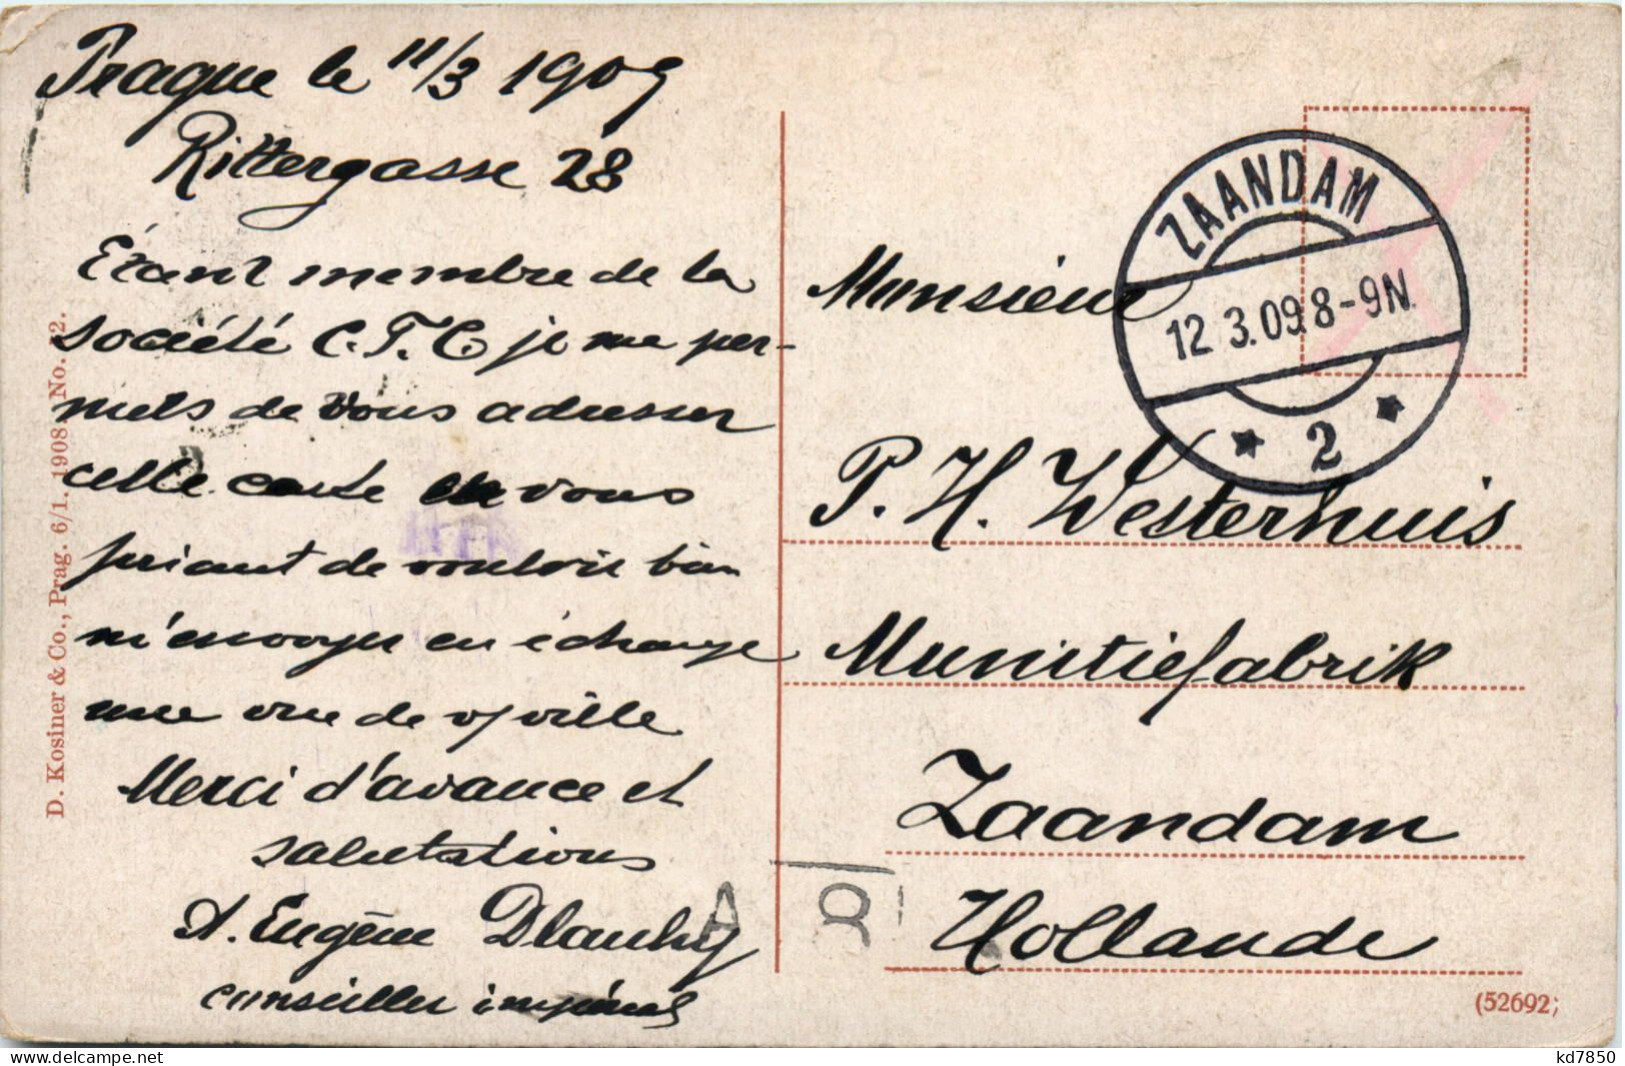 Prague le 11/3 1909
Rittergasse 28
Étant membre de la
société C.T.C je me per-
mets de vous adresser
cette carte en vous
priant de vouloir bien
m'envoyer en échange
une vue de v/ville
Merci d'avance et
salutations
A. Eugène Dlouhy
conseiller impérial
D. Kosiner & Co., Prag. 6/1. 1908 No. 2.
ZAANDAM
12 3.09 8-9N
2
Monsieur
P. H. Westerhuis
Munitiefabrik
Zaandam
Hollande
(52692)
kd7850